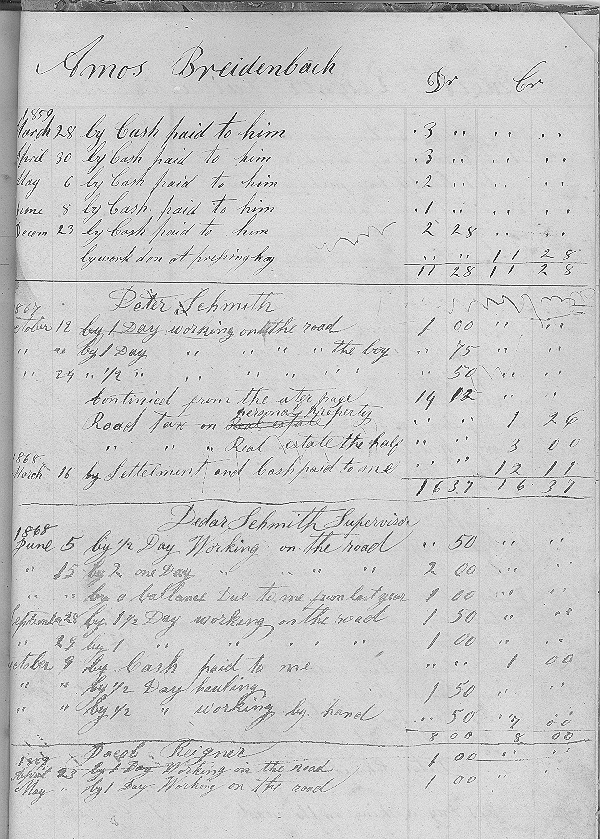 Amos Breidenbach Dr Cr
1859
March 28 by Cash paid to him 3 " " "
April 30 by Cash paid to him 3 " " "
May 6 by Cash paid to him 2 " " "
June 8 by Cash paid to him 1 " " "
Decem 23 by Cash paid to him 2 28 " "
by work don at presing hay " " 11 28
11 28 11 28
1867 Dater Schmith
October 12 by 1 Day working on the road 1 00 " "
" " by 1 Day " " " " the boy " 75 " "
" 24 " 1/2 " " " " " " " 50
Continued from the ater page 14 12 " "
personal Property
Road tax on Real estate " " 1 26
" " " Real estate the half " " 3 00
1868
March 16 by Settelment and Cash paid to me " " 12 11
16 37 16 37
Dedar Schmith Supervisor
1868
June 5 by 1/2 Day Working on the road " 50 " "
" 15 by 2 one Day " " " " 2 00 " "
" " by a ballance Due to me from last year 1 00 " "
September 28 by 1 1/2 Day working on the road 1 50 " "
" 29 by 1 " " " " " 1 00 " "
October 9 by Cash paid to me " " 1 00
" " by 1/2 Day hauling 1 50 " "
" " by 1/2 " working by hand " 50 7 00
8 00 8 00
Jacob Reigner
1869
April 23 by 1 Day Working on the road 1 00 " "
May " by 1 Day Working on the road 1 00 "